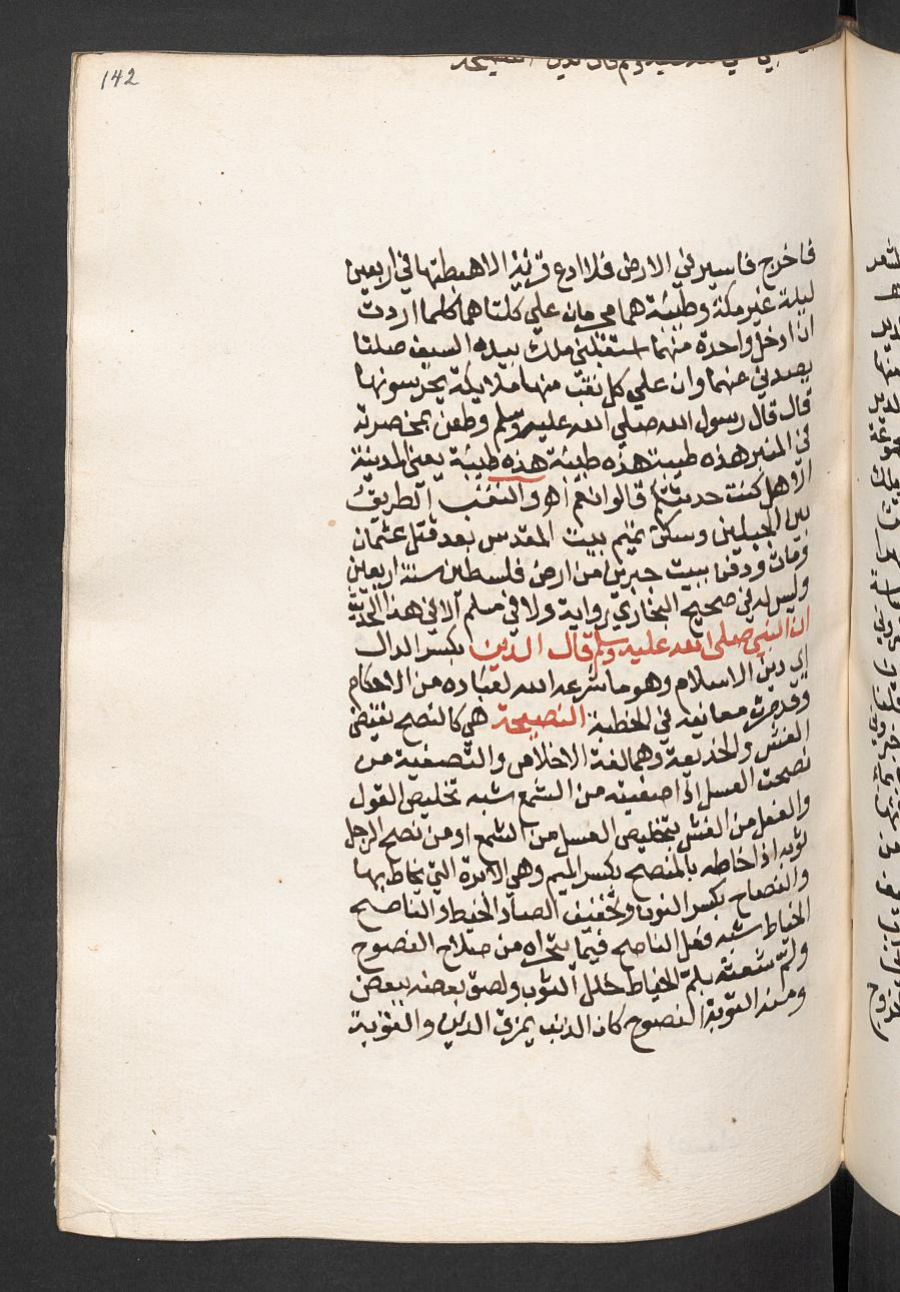 142
فاخرج فاسير في الارض فلا ادع قرية الا هبطتها في اربعين
ليلة غير مكة وطيبة هما محرمان علي كلتاهما كلما اردت
ان ادخل واحدة منهما استقبلني ملك بيده السيف صلتا
يصدني عنهما وان علي كل نقب منها ملايكة يحرسونها
قال قال رسول الله صلي الله عليه وسلم وطعن بمخصرته
في المنبر هذه طيبة هذه طيبة هذه طيبة يعني المدينة
الا هل كنت حدثتكم قالوا نعم اهو والنقب الطريق
بين الجبلين وسكن تميم بيت المقدس بعد قتل عثمان
ومات ودفن ببيت جبرين من ارض فلسطين سنة اربعين
وليس له في صحيح البخاري رواية ولا في مسلم الا في هذا الحديث
ان النبي صلي الله عليه وسلم قال الدين بكسر الدال
اي دين الاسلام وهو ما شرعه الله لعباده من الاحكام
وقد مرت معانيه في الخطبة النصيحة هي كالنصح نقيض
الغش والخديعة وهما لغة الاخلاص والتصفية من
نصحت العسل اذا صفيته من الشمع شبه تخليص القول
والفعل من الغش بتخليص العسل من الشمع او من نصح الرجل
ثوبه اذا خاطه بالمنصح بكسر الميم وهي الابرة التي يخاط بها
والنصاح بكسر النون وتخفيف الصاد الخيط والناصح
الخياط شبه فعل الناصح فيما يتحراه من صلاح المنصوح
ولم شعثه بلم الخياط خلل الثوب ولصق بعضه ببعض
ومنه التوبة النصوح كان الذنب يمزق الدين والتوبة